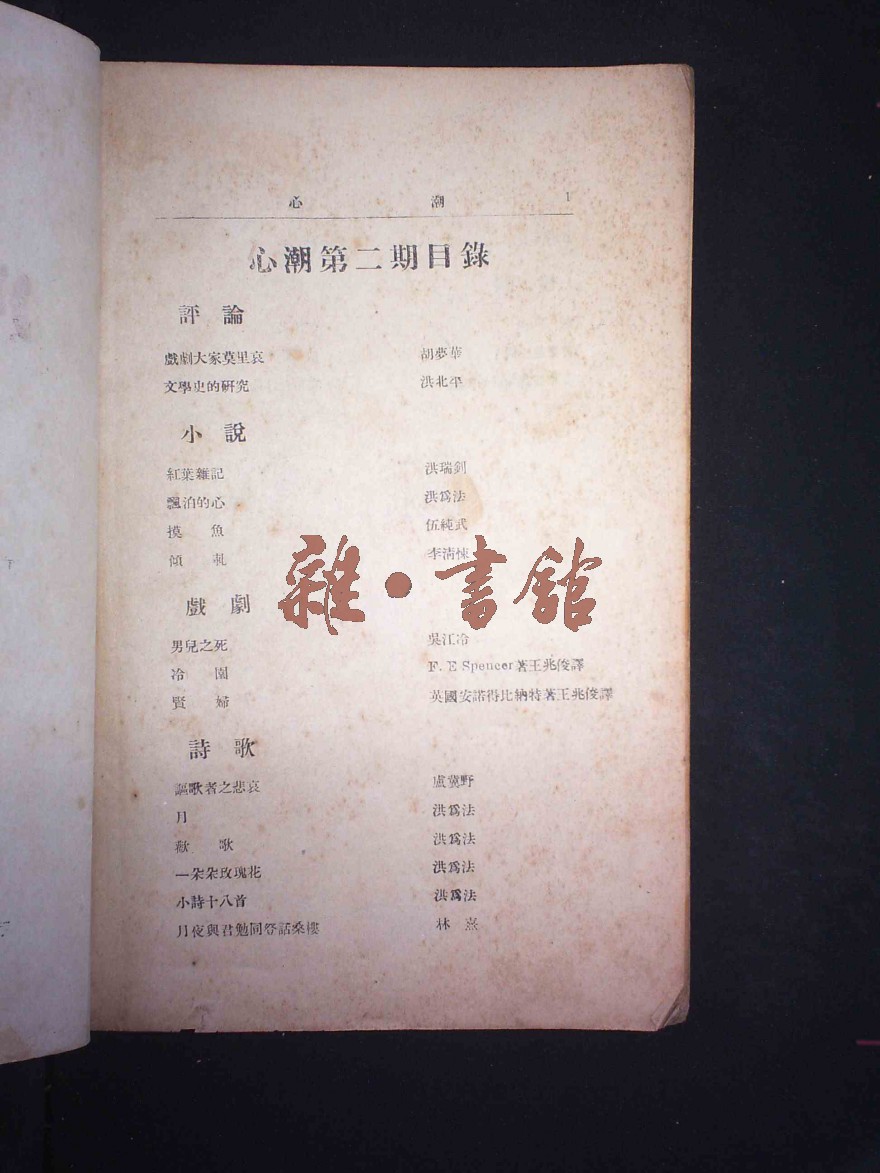 心潮 1
心潮第二期目錄
評論
戲劇大家莫里哀 胡夢華
文學史的研究 洪北平
小說
紅葉雜記 洪瑞釗
飄泊的心 洪爲法
摸魚 伍純武
傾軋 李清悚
戲劇
男兒之死 吳江冷
冷園 F. E Spencer著王兆俊譯
賢婦 英國安諾得比納特著王兆俊譯
詩歌
謳歌者之悲哀 盧冀野
月 洪爲法
歌 洪爲法
一朵朵玫瑰花 洪爲法
小詩十八首 洪爲法
月夜與君勉同登話桑樓 林熹
雜·書館